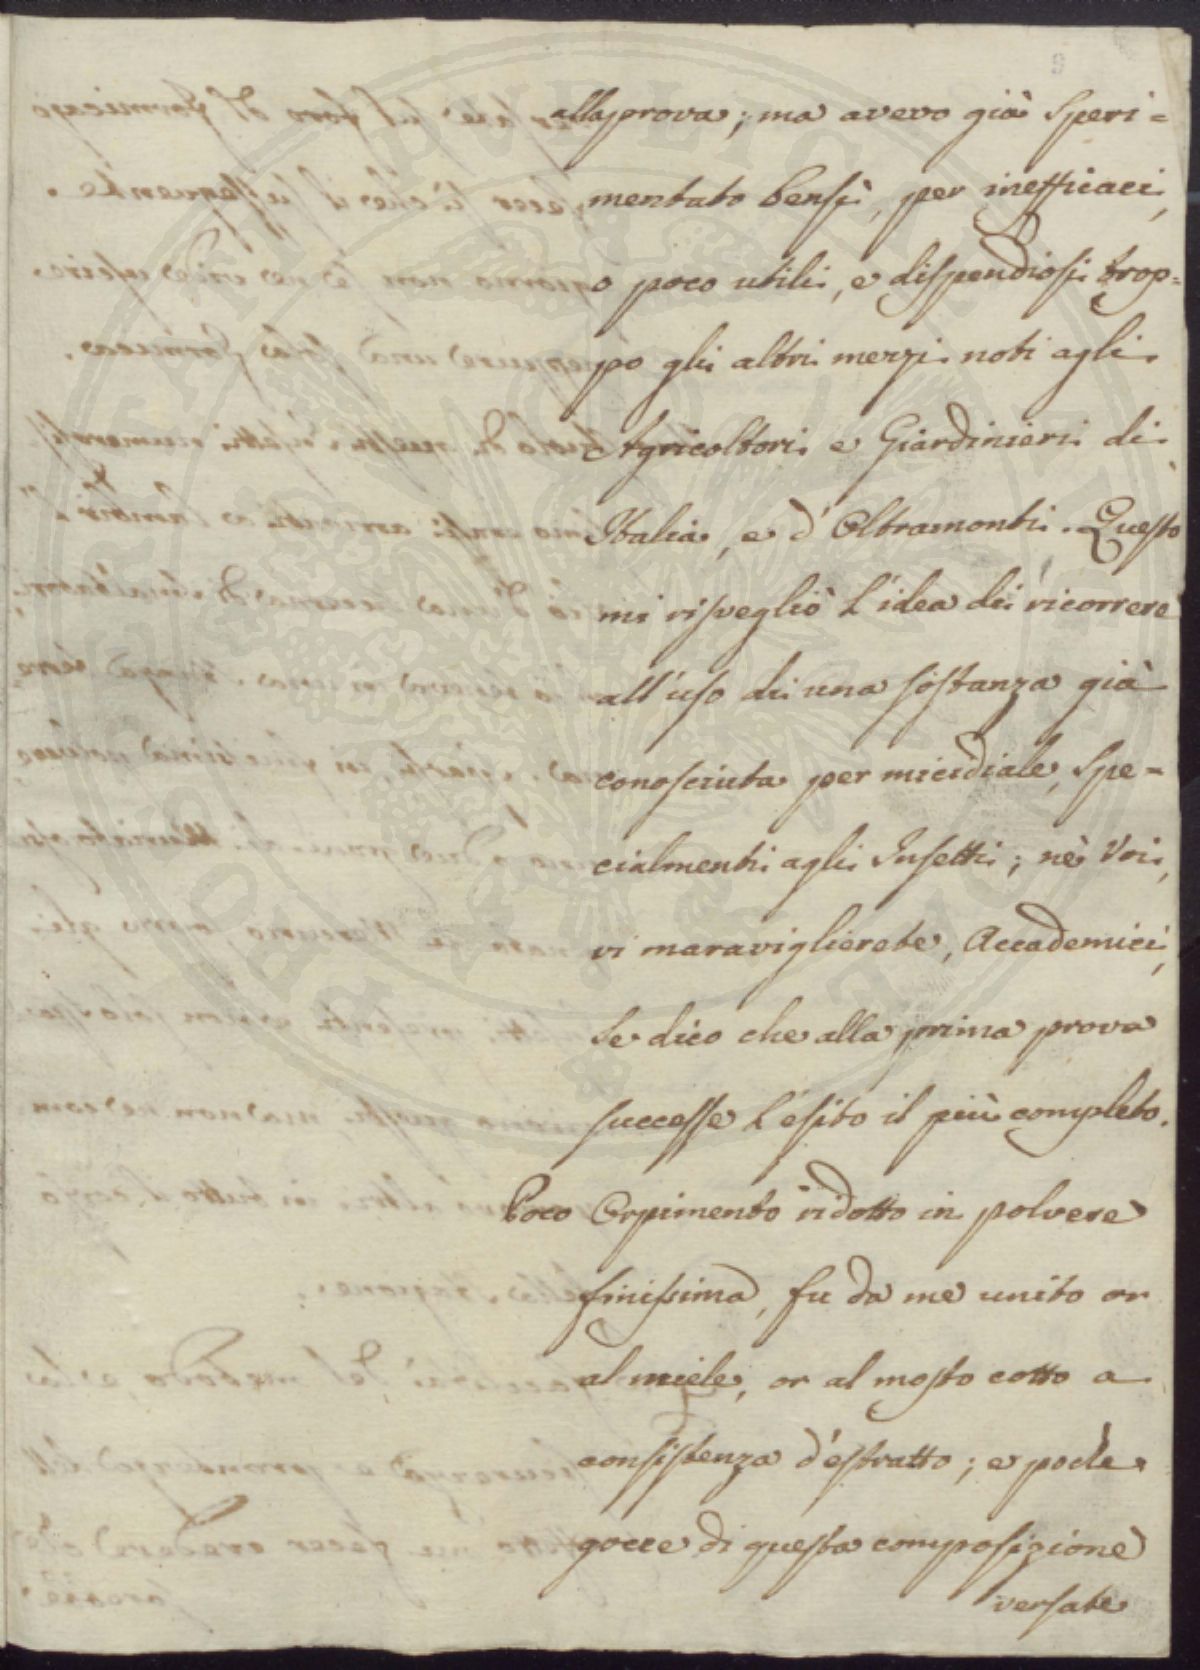 9
alla prova; ma avevo già speri=
mentato bensì, per inefficaci,
o poco utili, e dispendiosi trop=
po gli altri mezzi noti agli
Agricoltori e Giardinieri di
Italia, e d'Oltramonti. Questo
mi risvegliò l'idea di ricorrere
all'uso di una sostanza già
conosciuta per micidiale, spe=
cialmenti agli Insetti; nè Voi,
vi maraviglierete, Accademici,
se dico che alla prima prova
successe l'esito il più completo.
Poco Orpimento ridotto in polvere
finissima, fu da me unito or
al miele, or al mosto cotto a
consistenza d'estratto; e poche
gocce di questa composizione
versate